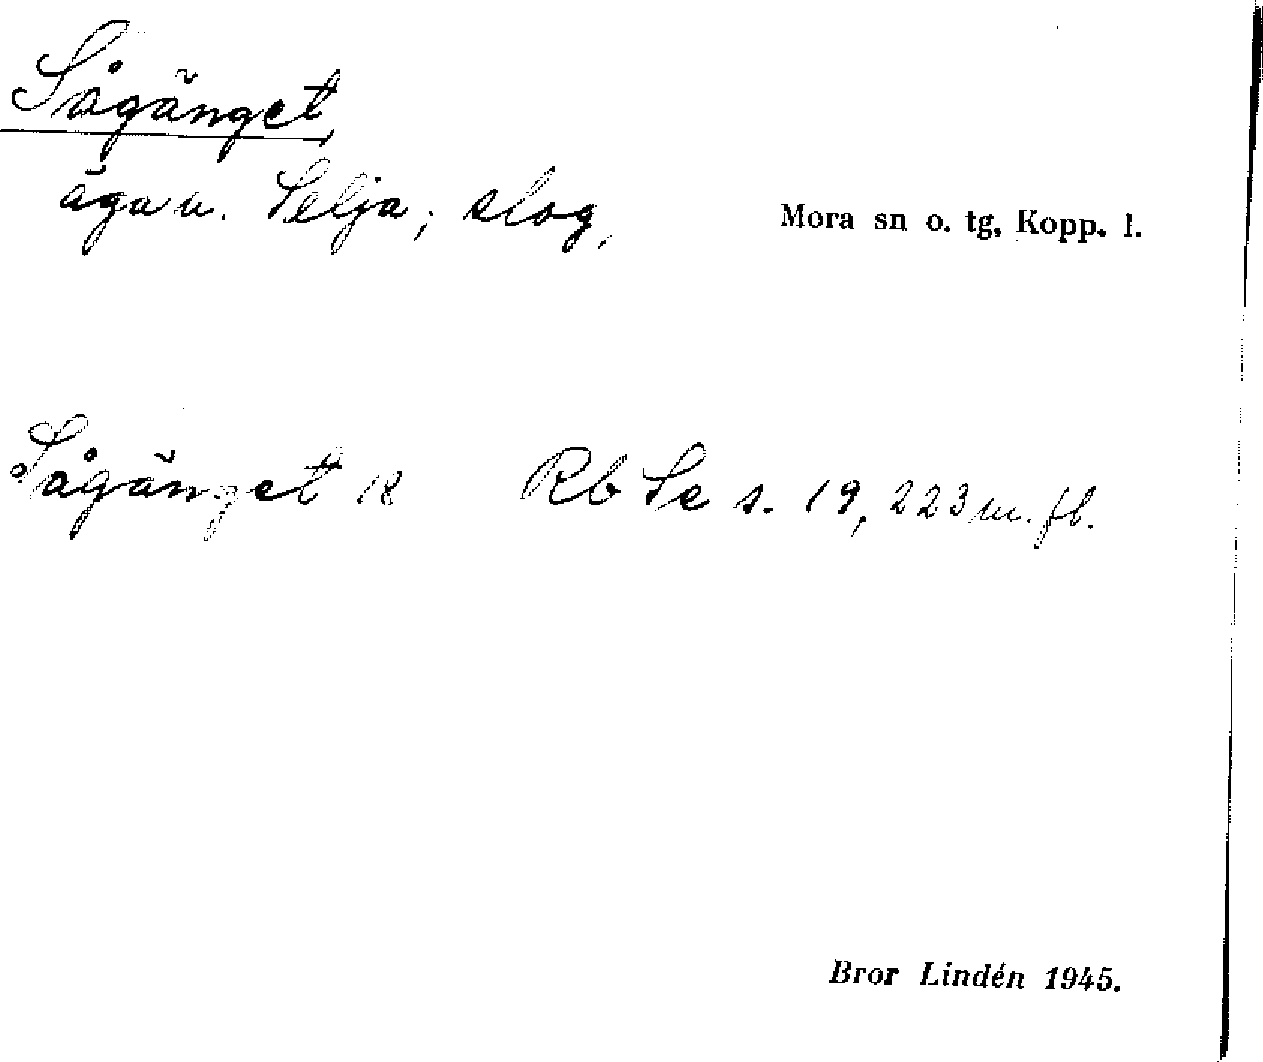 Sågänget
äga u. Selja; slog,
Mora sn o. tg, Kopp. l.
Sågänget 18 Rb Se s. 19, 223 m. fl.
Bror Lindén 1945.